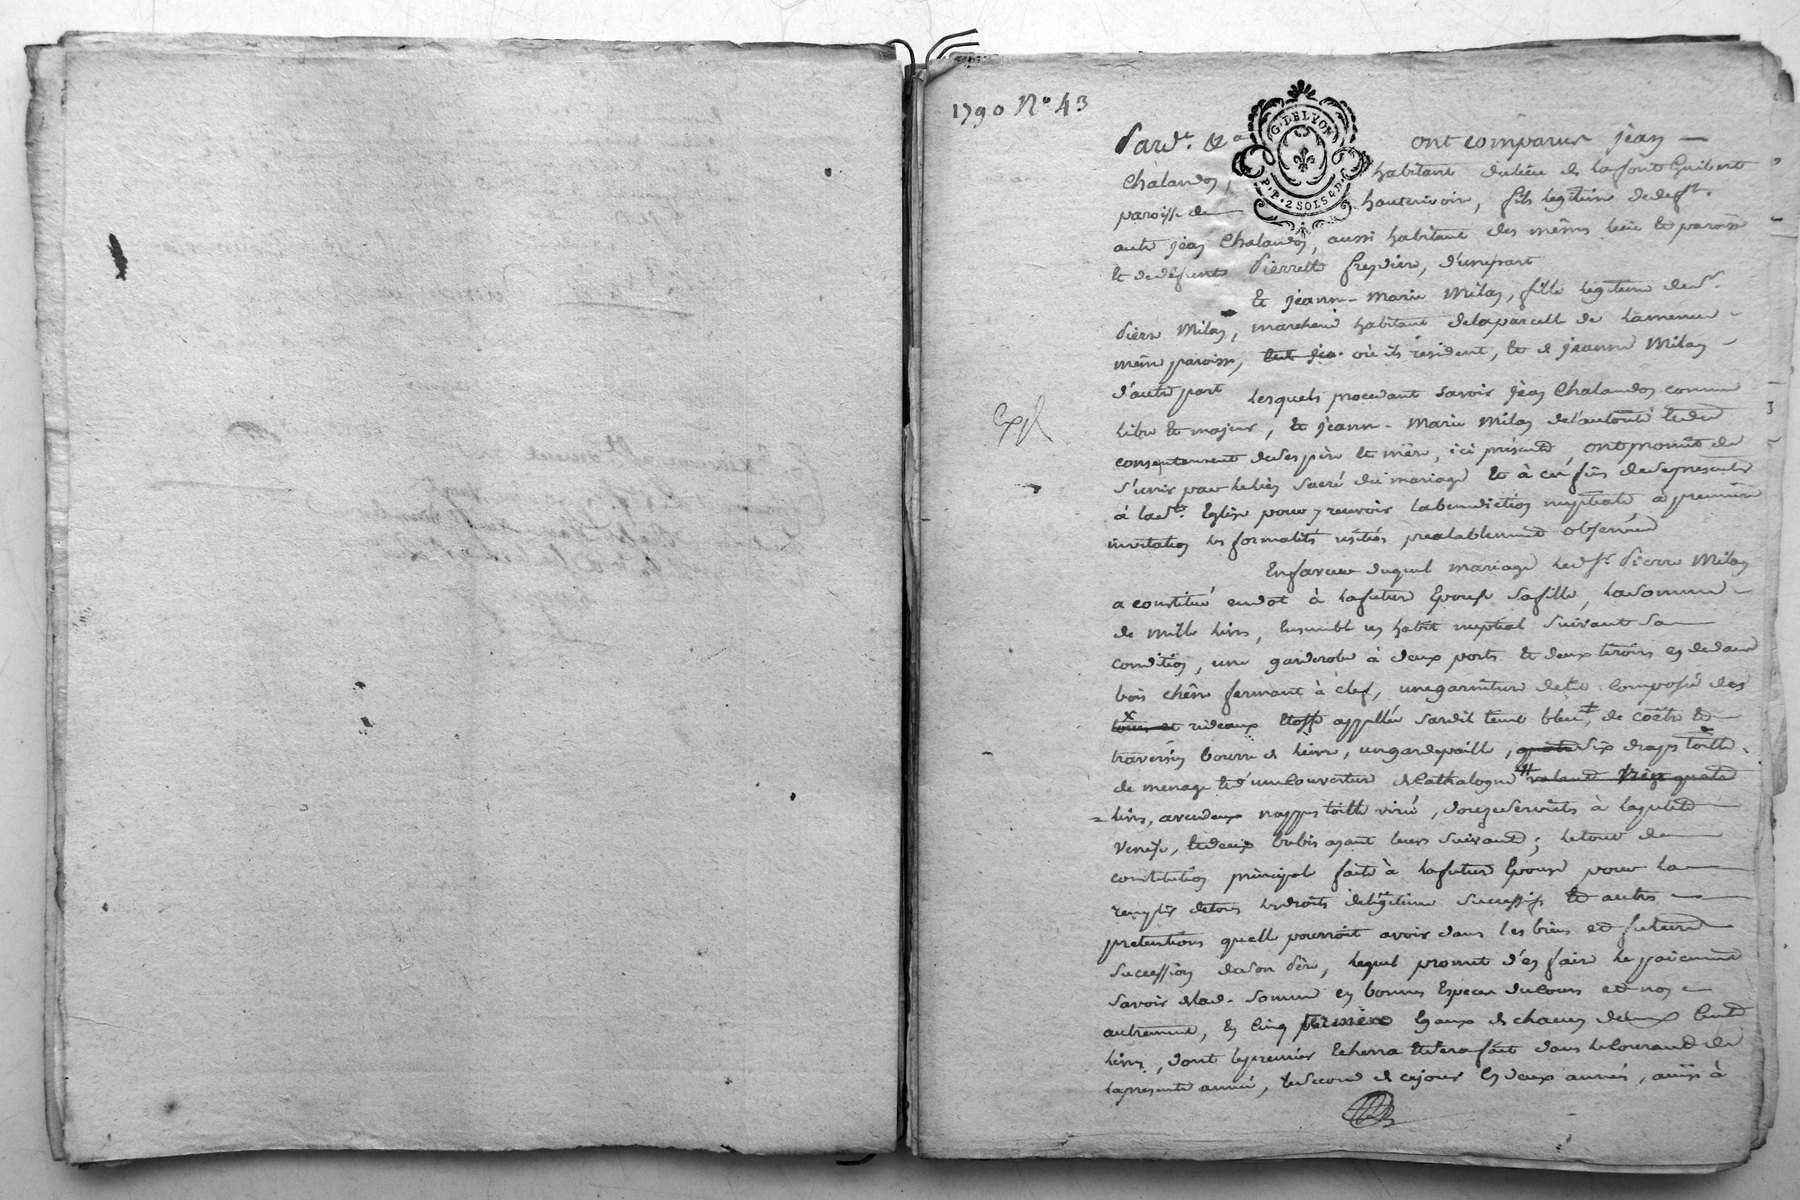 1790 N° 43
G. DE LYON
P. P. 2 SOLS 4 D.
Pard.t &a ont comparus jean
Chalandon, habitant du lieu de la font Guibert
paroisse de hauterivoire, fils legitime de deft.
autre jean Chalandon, aussi habitant des mêmes lieu et paroisse
et de défunte Pierrette freydiere, d'une part
Et jeanne-marie Milan, fille legitime de sr.
pierre Milan, marchand habitant de la parcelle de
même paroisse, où ils resident, et de jeanne Milan
d'autre part Lesquels procedant savoir jean Chalandon comme
libre et majeur, et jeanne-marie Milan de l'autorité et du
consentement de ses père et mère, ici présents, ont promis de
s'unir par le lien sacré du mariage et à ces fins de se presenter
à lad.te Eglise pour y recevoir la benediction nuptiale, à première
invitation les formalités usitées prealablement observées
En faveur duquel mariage led. sr. pierre Milan
a constitué en dot à la future Epouse sa fille, la somme
de mille livres, Ensemble un habit nuptial suivant sa
condition, une garderobe à deux portes et deux tiroirs en dedans
bois chêne fermant à clef, une garniture de lit composée des
tours et rideaux Etoffe appellée cardil teint bleu, de coëtre et
traversin bourre de lievre, un gardepaille, quatre six draps toille
de menage et d'une couverture de Cathalogne
livres, avec deux nappes toille virée, douze serviettes à la petite
Venise, et deux brebis ayant leurs suivants; le tout de
constitution principale faite à la future Epouse pour la
remplir de tous les droits de légitime successifs et autres
pretentions quelle pourroit avoir dans les biens et future
succession de son père, lequel promet d'en faire le paiement
savoir de lad. somme en bonnes Especes du cours et non
autrement, en cinq Egaux de chacun deux Cents
livres, dont le premier Echerra et sera fait dans le courant de
la presente année, le second de ce jour en deux années, ainsi à